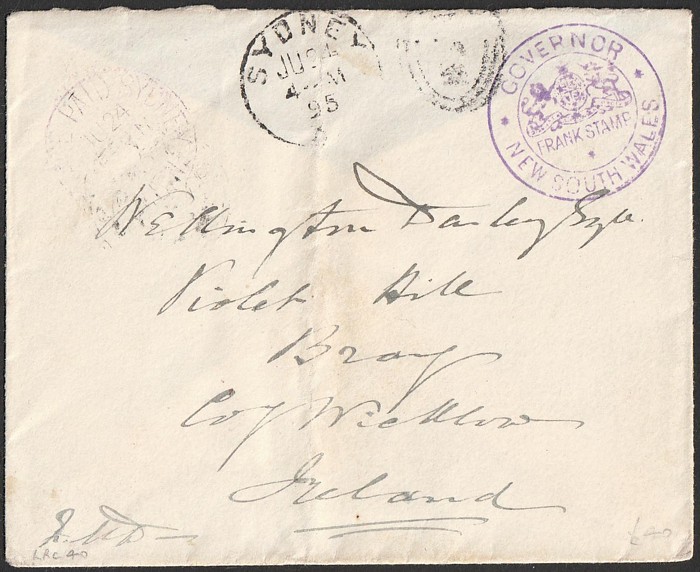 SYDNEY
JU
4 PM
95
GOVERNOR
FRANK STAMP
NEW SOUTH WALES
PAID
24
Wellington Darley Esqre.
Violet Hill
Bray
Coy Wicklow
Ireland
LRC 40
£40